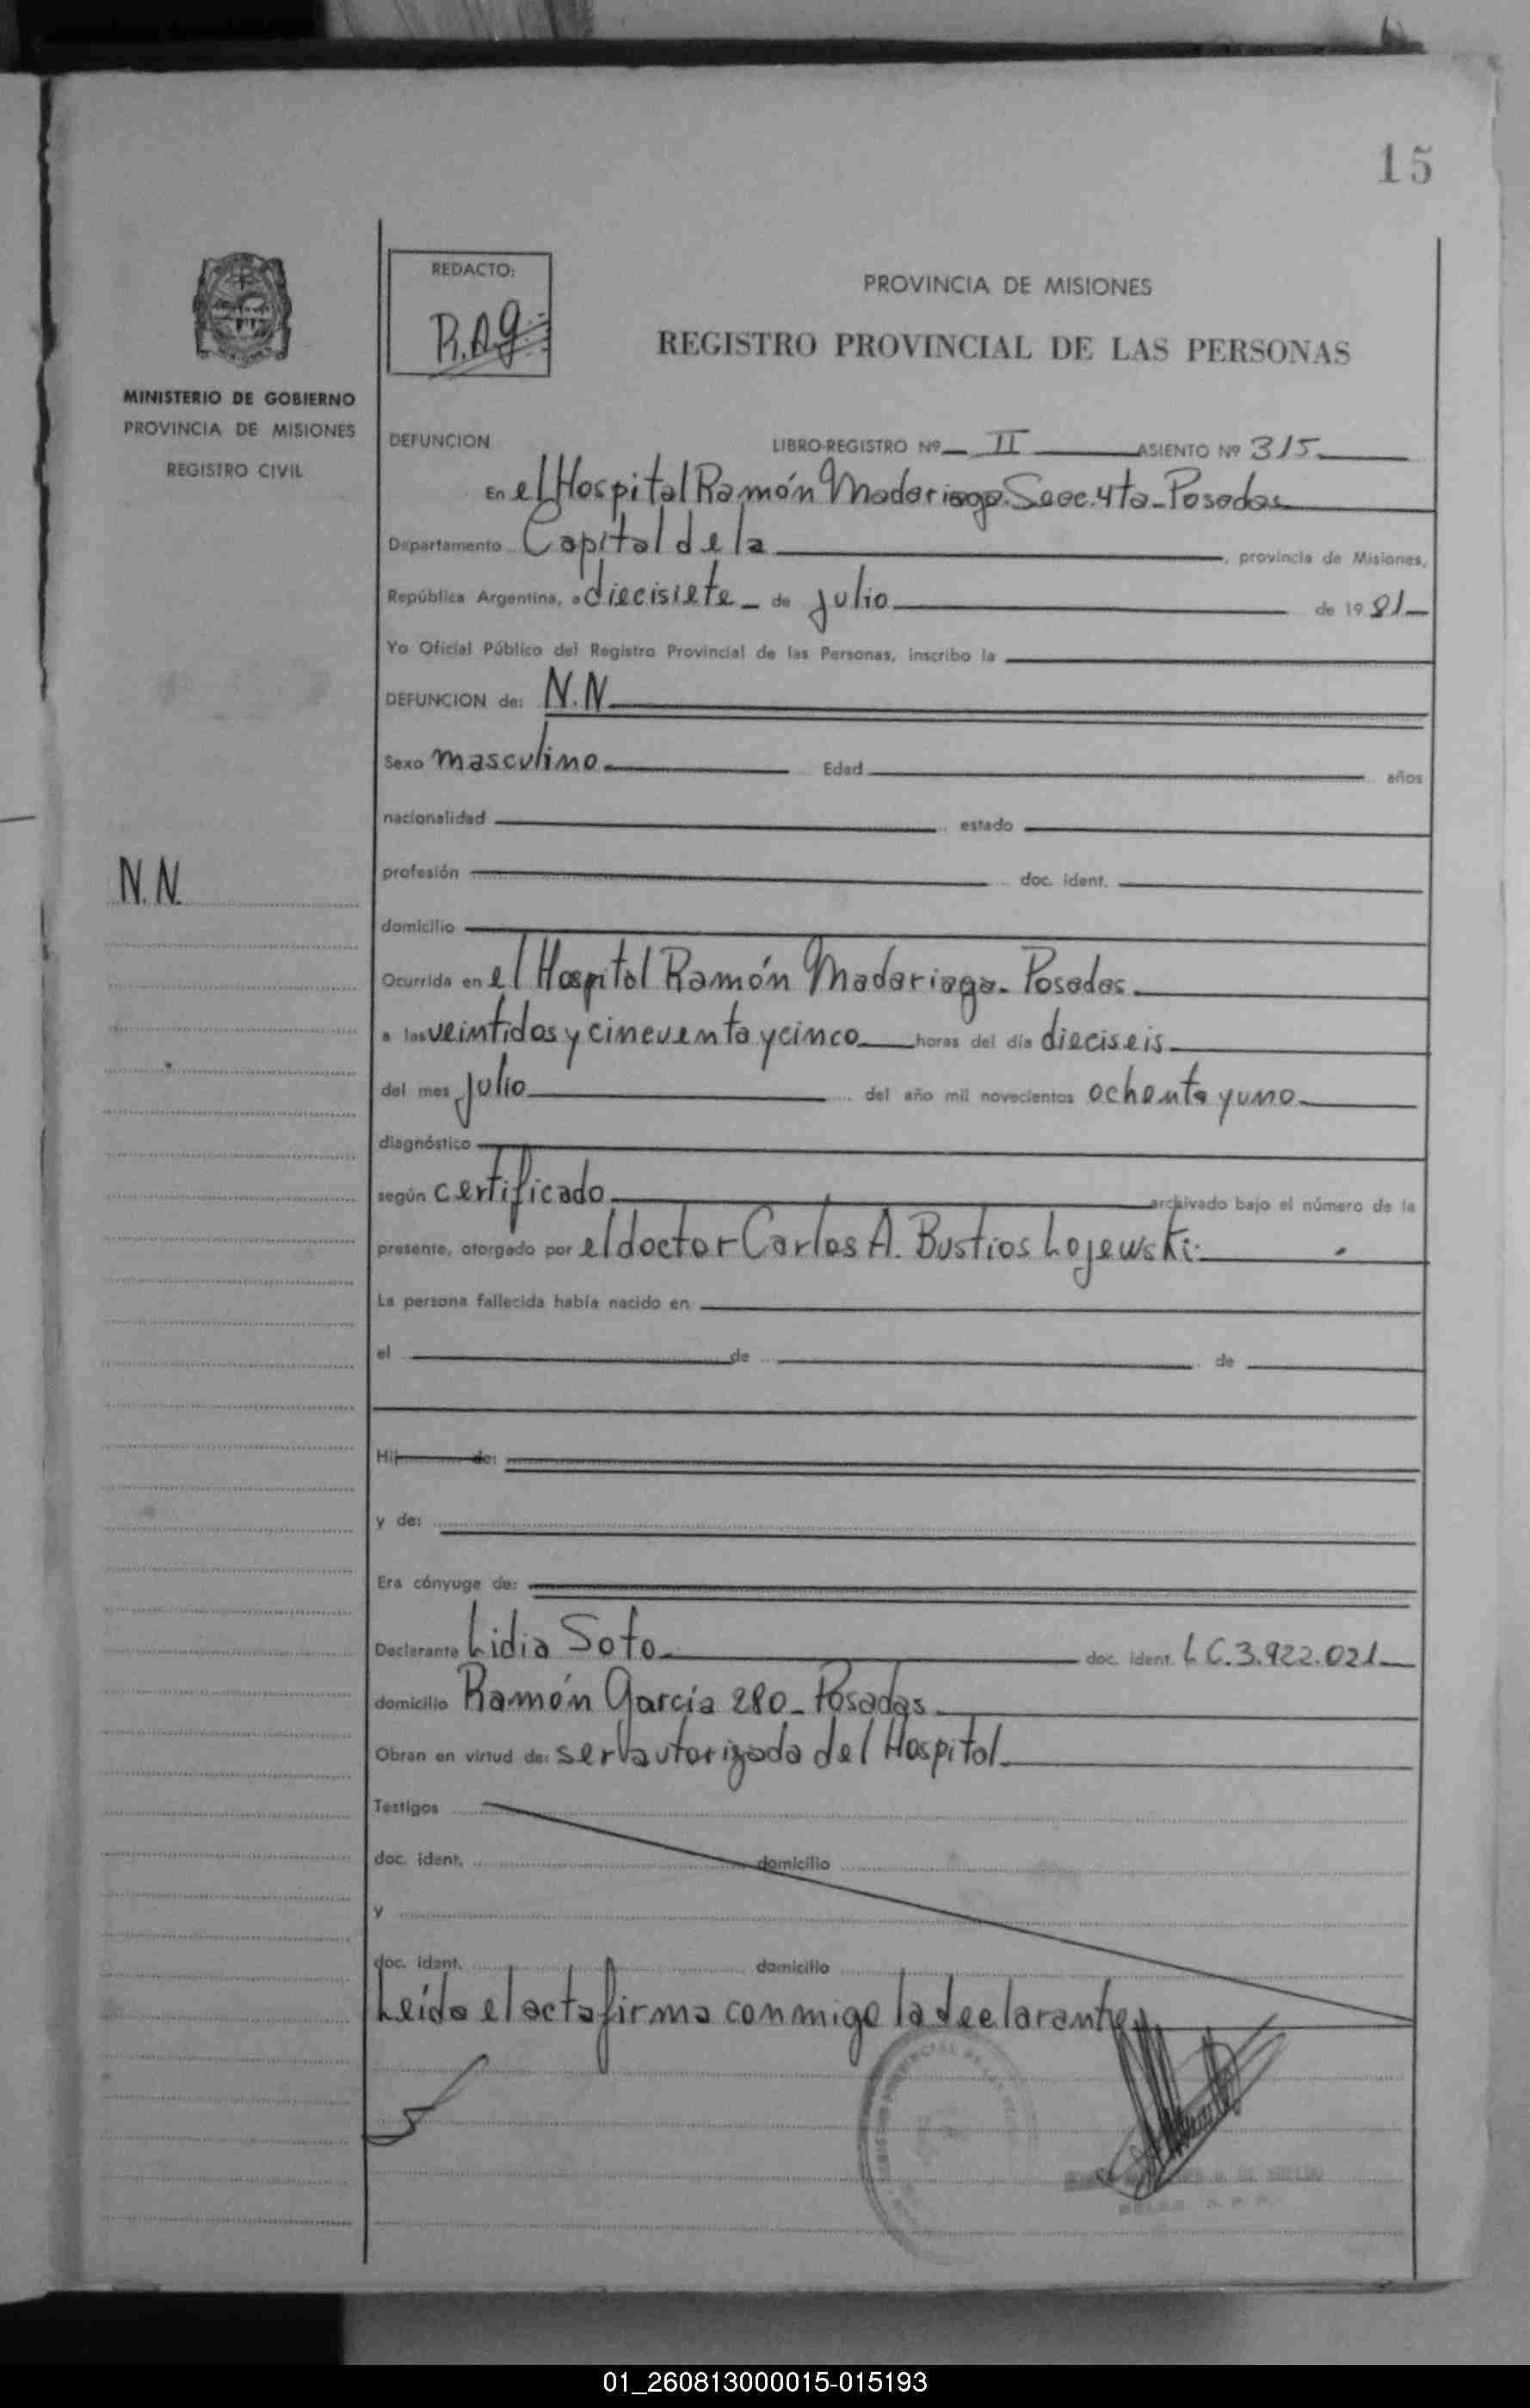 15
REDACTO:
R.A.g.
PROVINCIA DE MISIONES
REGISTRO PROVINCIAL DE LAS PERSONAS
MINISTERIO DE GOBIERNO
PROVINCIA DE MISIONES
REGISTRO CIVIL
DEFUNCION LIBRO-REGISTRO Nº II ASIENTO Nº 315
En el Hospital Ramón Madariaga. Secc. 4ta - Posadas
Departamento Capital de la, provincia de Misiones,
República Argentina, a diecisiete de julio de 1981
Yo Oficial Público del Registro Provincial de las Personas, inscribo la
DEFUNCION de: N.N
Sexo masculino Edad años
nacionalidad estado
profesión doc. ident.
N.N.
domicilio
Ocurrida en el Hospital Ramón Madariaga - Posadas
a las veintidos y cincuenta y cinco horas del día dieciseis
del mes julio del año mil novecientos ochenta y uno
diagnóstico
según certificado archivado bajo el número de la
presente, otorgado por el doctor Carlos A. Bustios Lojewski
La persona fallecida había nacido en
el de de
Hij de:
y de:
Era cónyuge de:
Declarante Lidia Soto doc. ident. L.C. 3.922.021
domicilio Ramón García 280 - Posadas
Obran en virtud de: ser autorizada del Hospital
Testigos
doc. ident. domicilio
y
doc. ident. domicilio
Leída el acta firma conmigo la declarante
01_260813000015-015193